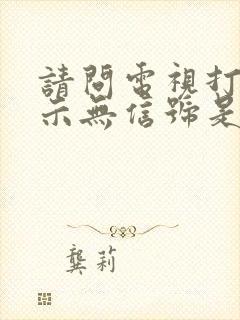 請問電視打
示無信號是
龔莉